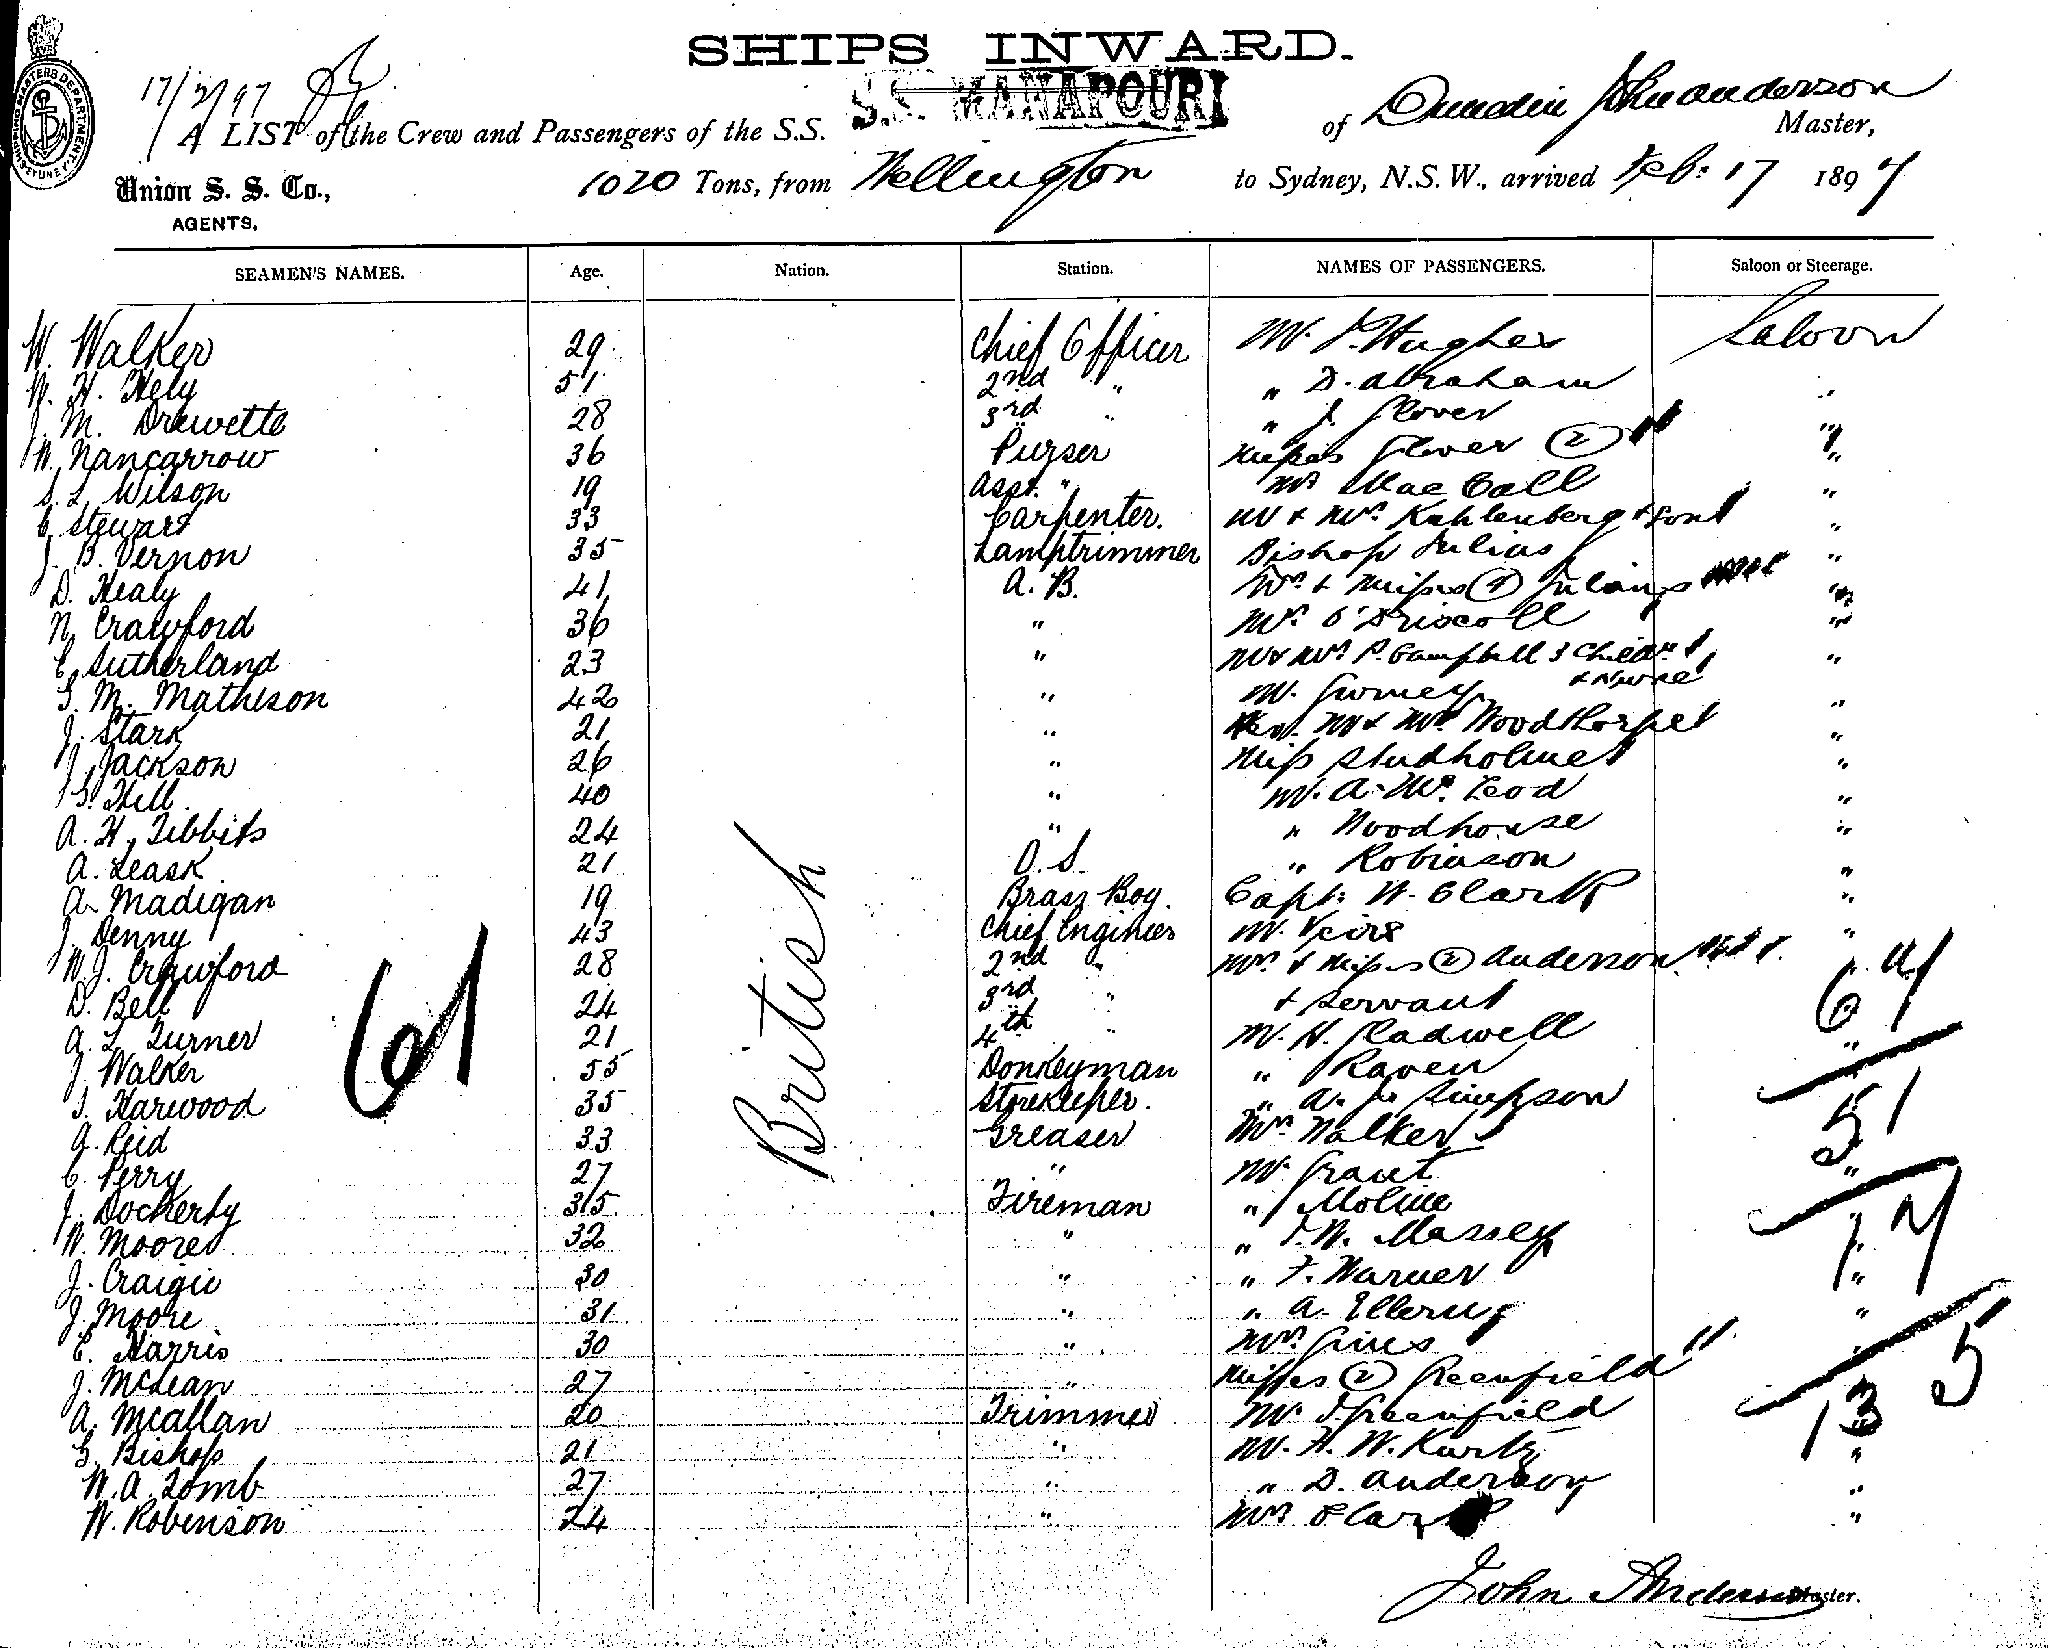 SHIPS INWARD.
17/2/97
A LIST of the Crew and Passengers of the S.S. S.S. MANAPOURI of Dunedin John Anderson Master,
Union S. S. Co., AGENTS.
1020 Tons, from Wellington to Sydney, N.S.W., arrived Feb: 17 1897
SEAMEN'S NAMES. Age. Nation. Station. NAMES OF PASSENGERS. Saloon or Steerage.
W. Walker 29 Chief Officer Mr. Hughes Saloon
W. H. Hely 51 2nd " " D. Abraham "
J. M. Drewette 28 3rd " " J. Glover "
W. Nancarrow 36 Purser Misses Glover (2) "
S. L. Wilson 19 Asst. " Mr Mac Call "
C. Stewart 33 Carpenter. Mr & Mrs. Kahlenberg & son "
J. B. Vernon 35 Lamptrimmer Bishop Julius "
D. Healy 41 A. B. Mrs & Misses Julius "
N. Crawford 36 " Mr. O'Driscoll "
C. Sutherland 23 " Mr & Mrs P. Campbell 3 Childn "
& Nurse
G. M. Mathison 42 " Mr. "
J. Stark 21 " Rev. Mr & Mrs Woodthorpe "
J. Jackson 26 " Miss Studholme "
G. Hill 40 " Mr. A. Mc Leod "
A. H. Tibbits 24 " " Woodhouse "
A. Leask. 21 O. S. " Robinson "
A. Madigan 19 Brass Boy. Capt. W. Clark "
J. Denny 43 Chief Engineer Mr. "
W. J. Crawford 28 2nd " Mrs & Misses (2) Anderson "
D. Bell 24 3rd " & servant
A. L. Turner 21 4th " Mr. W. Gladwell "
J. Walker 55 Donkeyman " Raven "
S. Harwood 35 Storekeeper. " A. Simpson
G. Reid 33 Greaser Mrs Walker
C. Perry 27 " Mr. Grant "
J. Docherty 35 Fireman " Moline "
W. Moores 32 " " W. Massey "
J. Craigie 30 " " F. Warner "
J. Moore 31 " " A. "
C. Harris 30 " Mrs. "
J. McLean 27 " Misses (2) Greenfield
A. McAllan 20 Trimmer Mr. Greenfield
G. Bishop 21 " Mr. H. W. Kurtz "
W. A. Lomb 27 " " D. Anderson "
W. Robinson 24 " Mrs Clark "
British
61
67
51
17
135
John Anderson Master.